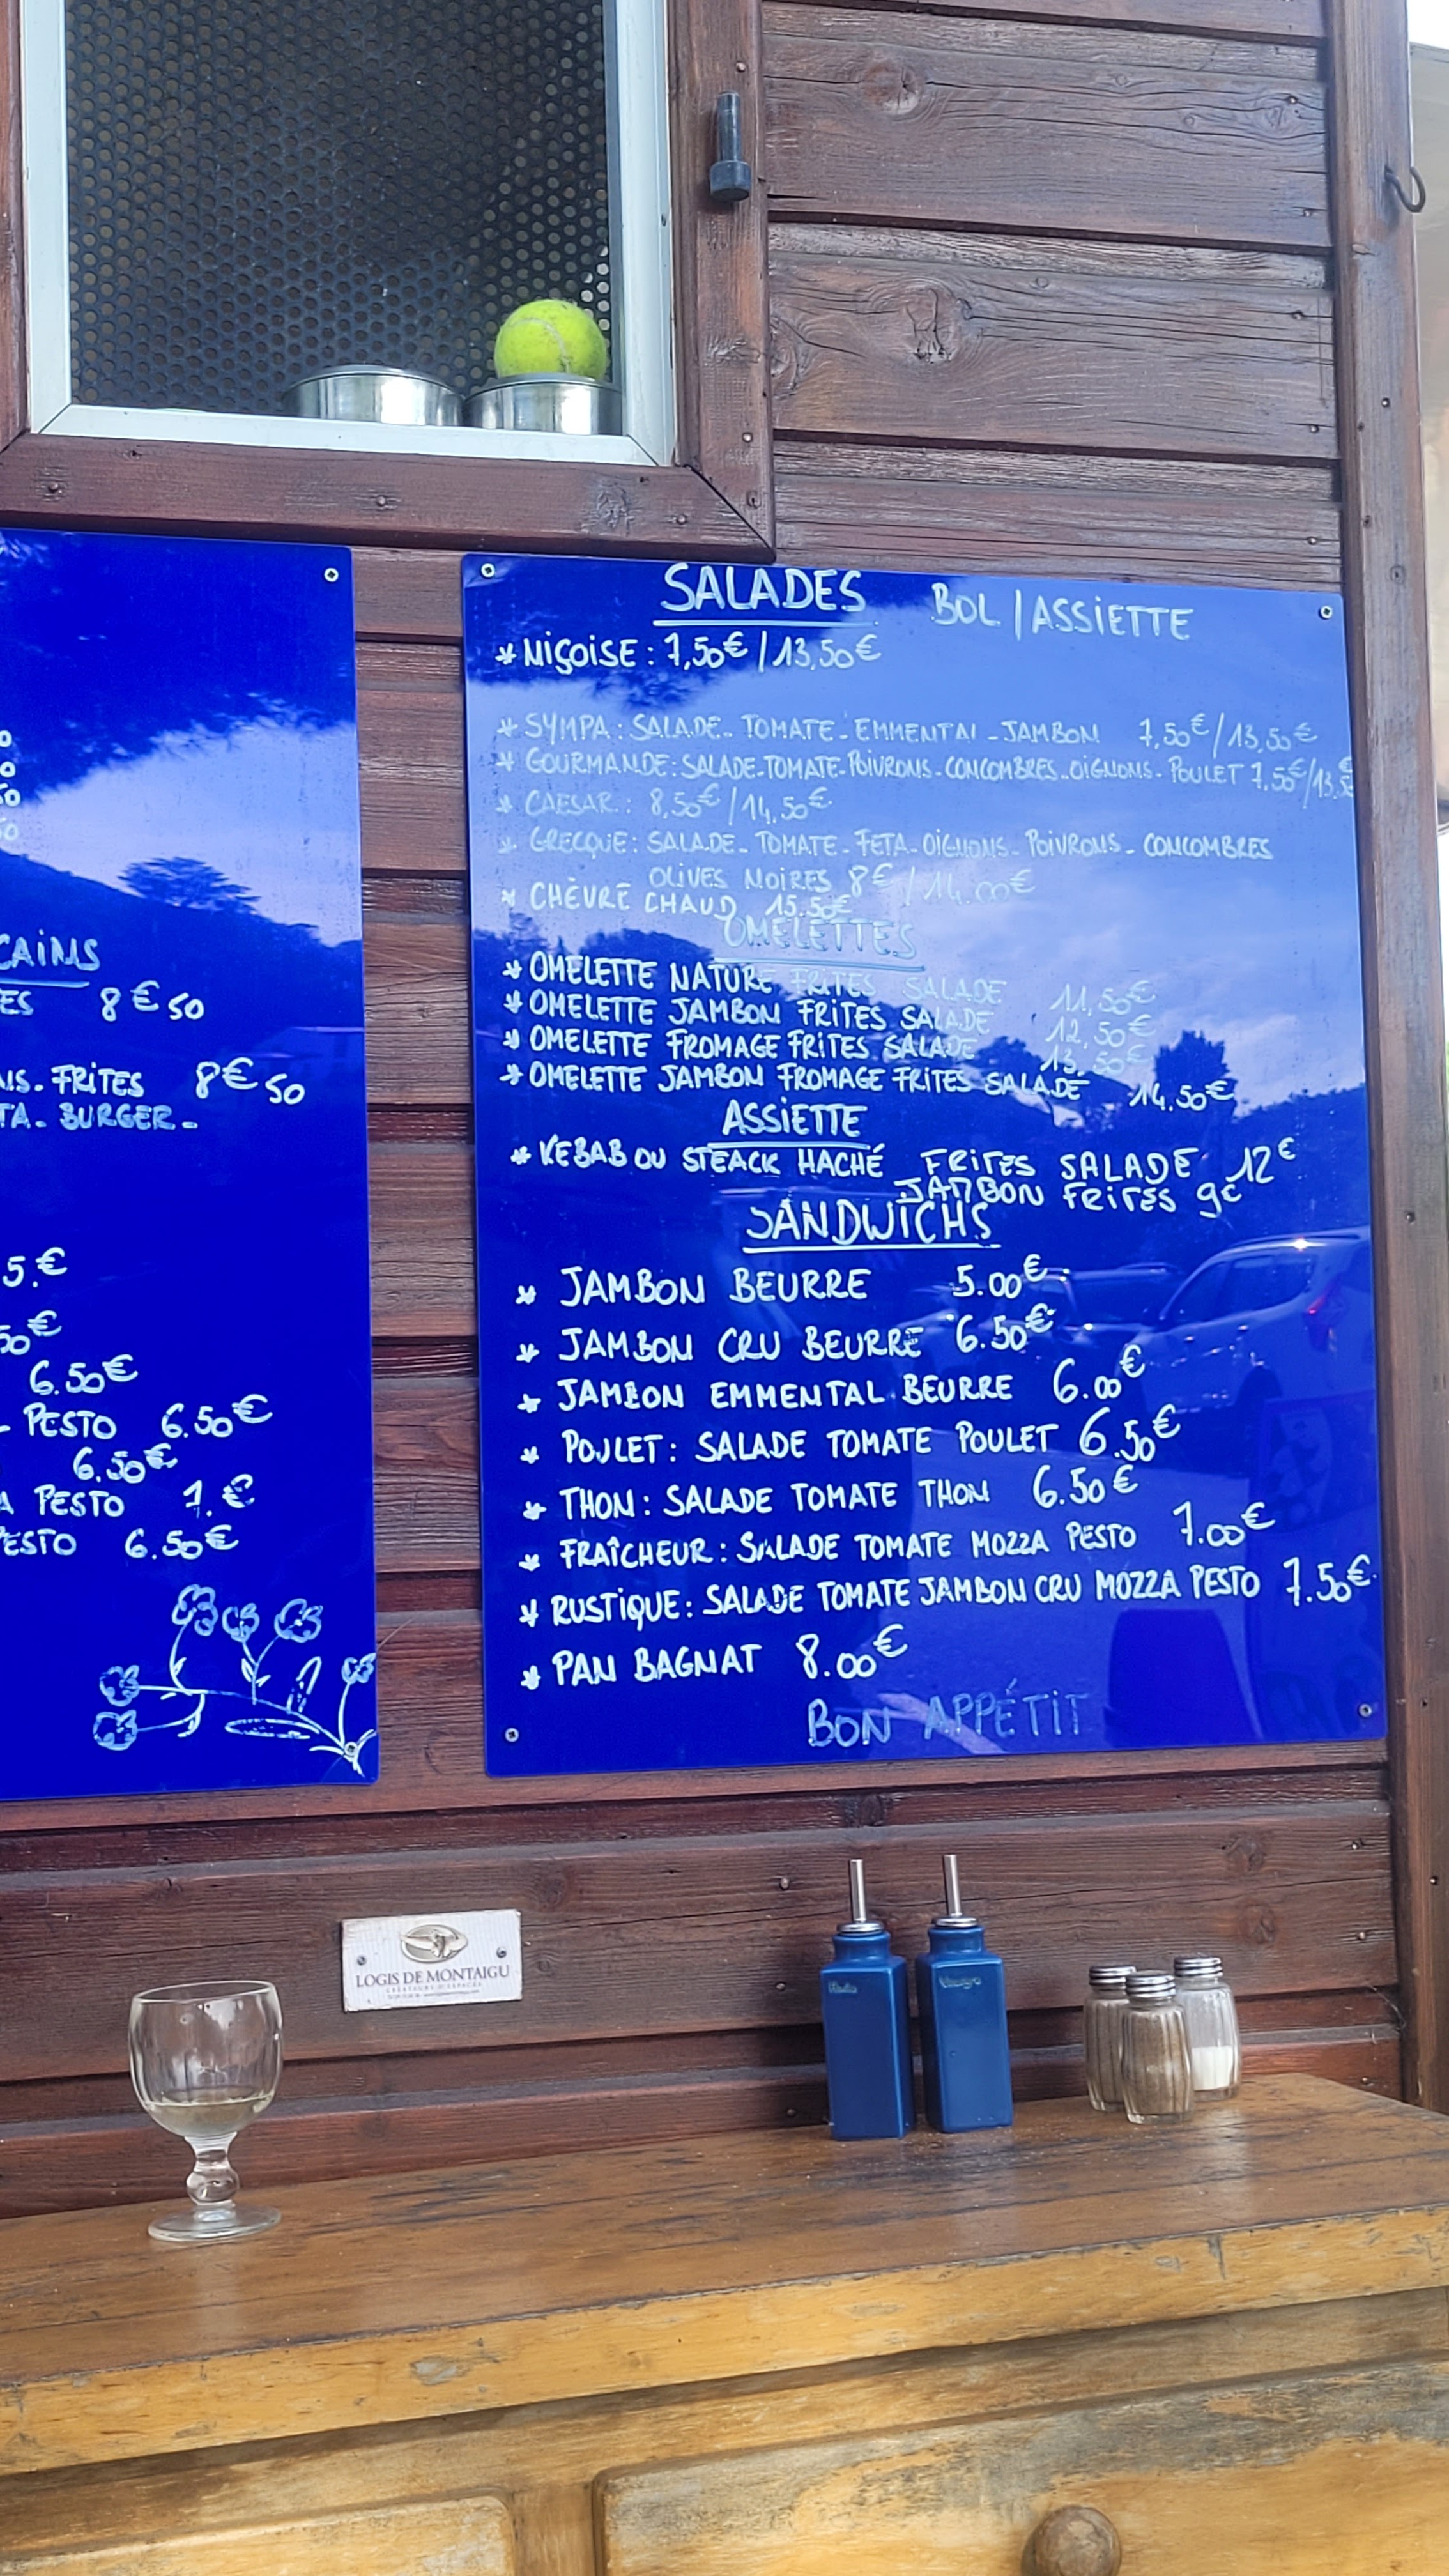 CAINS
ES 8€50
NS-FRITES 8€50
TA-BURGER-
5.€
50€
6.50€
- PESTO 6.50€
6.50€
A PESTO 7.€
PESTO 6.50€
SALADES BOL/ASSIETTE
* NIÇOISE: 7,50€/13,50€
* SYMPA: SALADE-TOMATE-EMMENTAL-JAMBON 7,50€/13,50€
* GOURMANDE: SALADE-TOMATE-POIVRONS-CONCOMBRES-OIGNONS-POULET 7,50€/13,5€
* CAESAR: 8,50€/14,50€
* GRECQUE: SALADE-TOMATE-FETA-OIGNONS-POIVRONS-CONCOMBRES
OLIVES NOIRES 8€/14.00€
* CHÈVRE CHAUD 15.50€
OMELETTES
* OMELETTE NATURE FRITES SALADE 11,50€
* OMELETTE JAMBON FRITES SALADE 12,50€
* OMELETTE FROMAGE FRITES SALADE 13.50€
* OMELETTE JAMBON FROMAGE FRITES SALADE 14.50€
ASSIETTE
* KEBAB OU STEACK HACHÉ FRITES SALADE 12€
JAMBON FRITES 9€
SANDWICHS
* JAMBON BEURRE 5.00€
* JAMBON CRU BEURRE 6.50€
* JAMBON EMMENTAL BEURRE 6.00€
* POULET: SALADE TOMATE POULET 6.50€
* THON: SALADE TOMATE THON 6.50€
* FRAÎCHEUR: SALADE TOMATE MOZZA PESTO 7.00€
* RUSTIQUE: SALADE TOMATE JAMBON CRU MOZZA PESTO 7.50€
* PAN BAGNAT 8.00€
BON APPÉTIT
LOGIS DE MONTAIGU
CRÉATEURS D'ESPACES